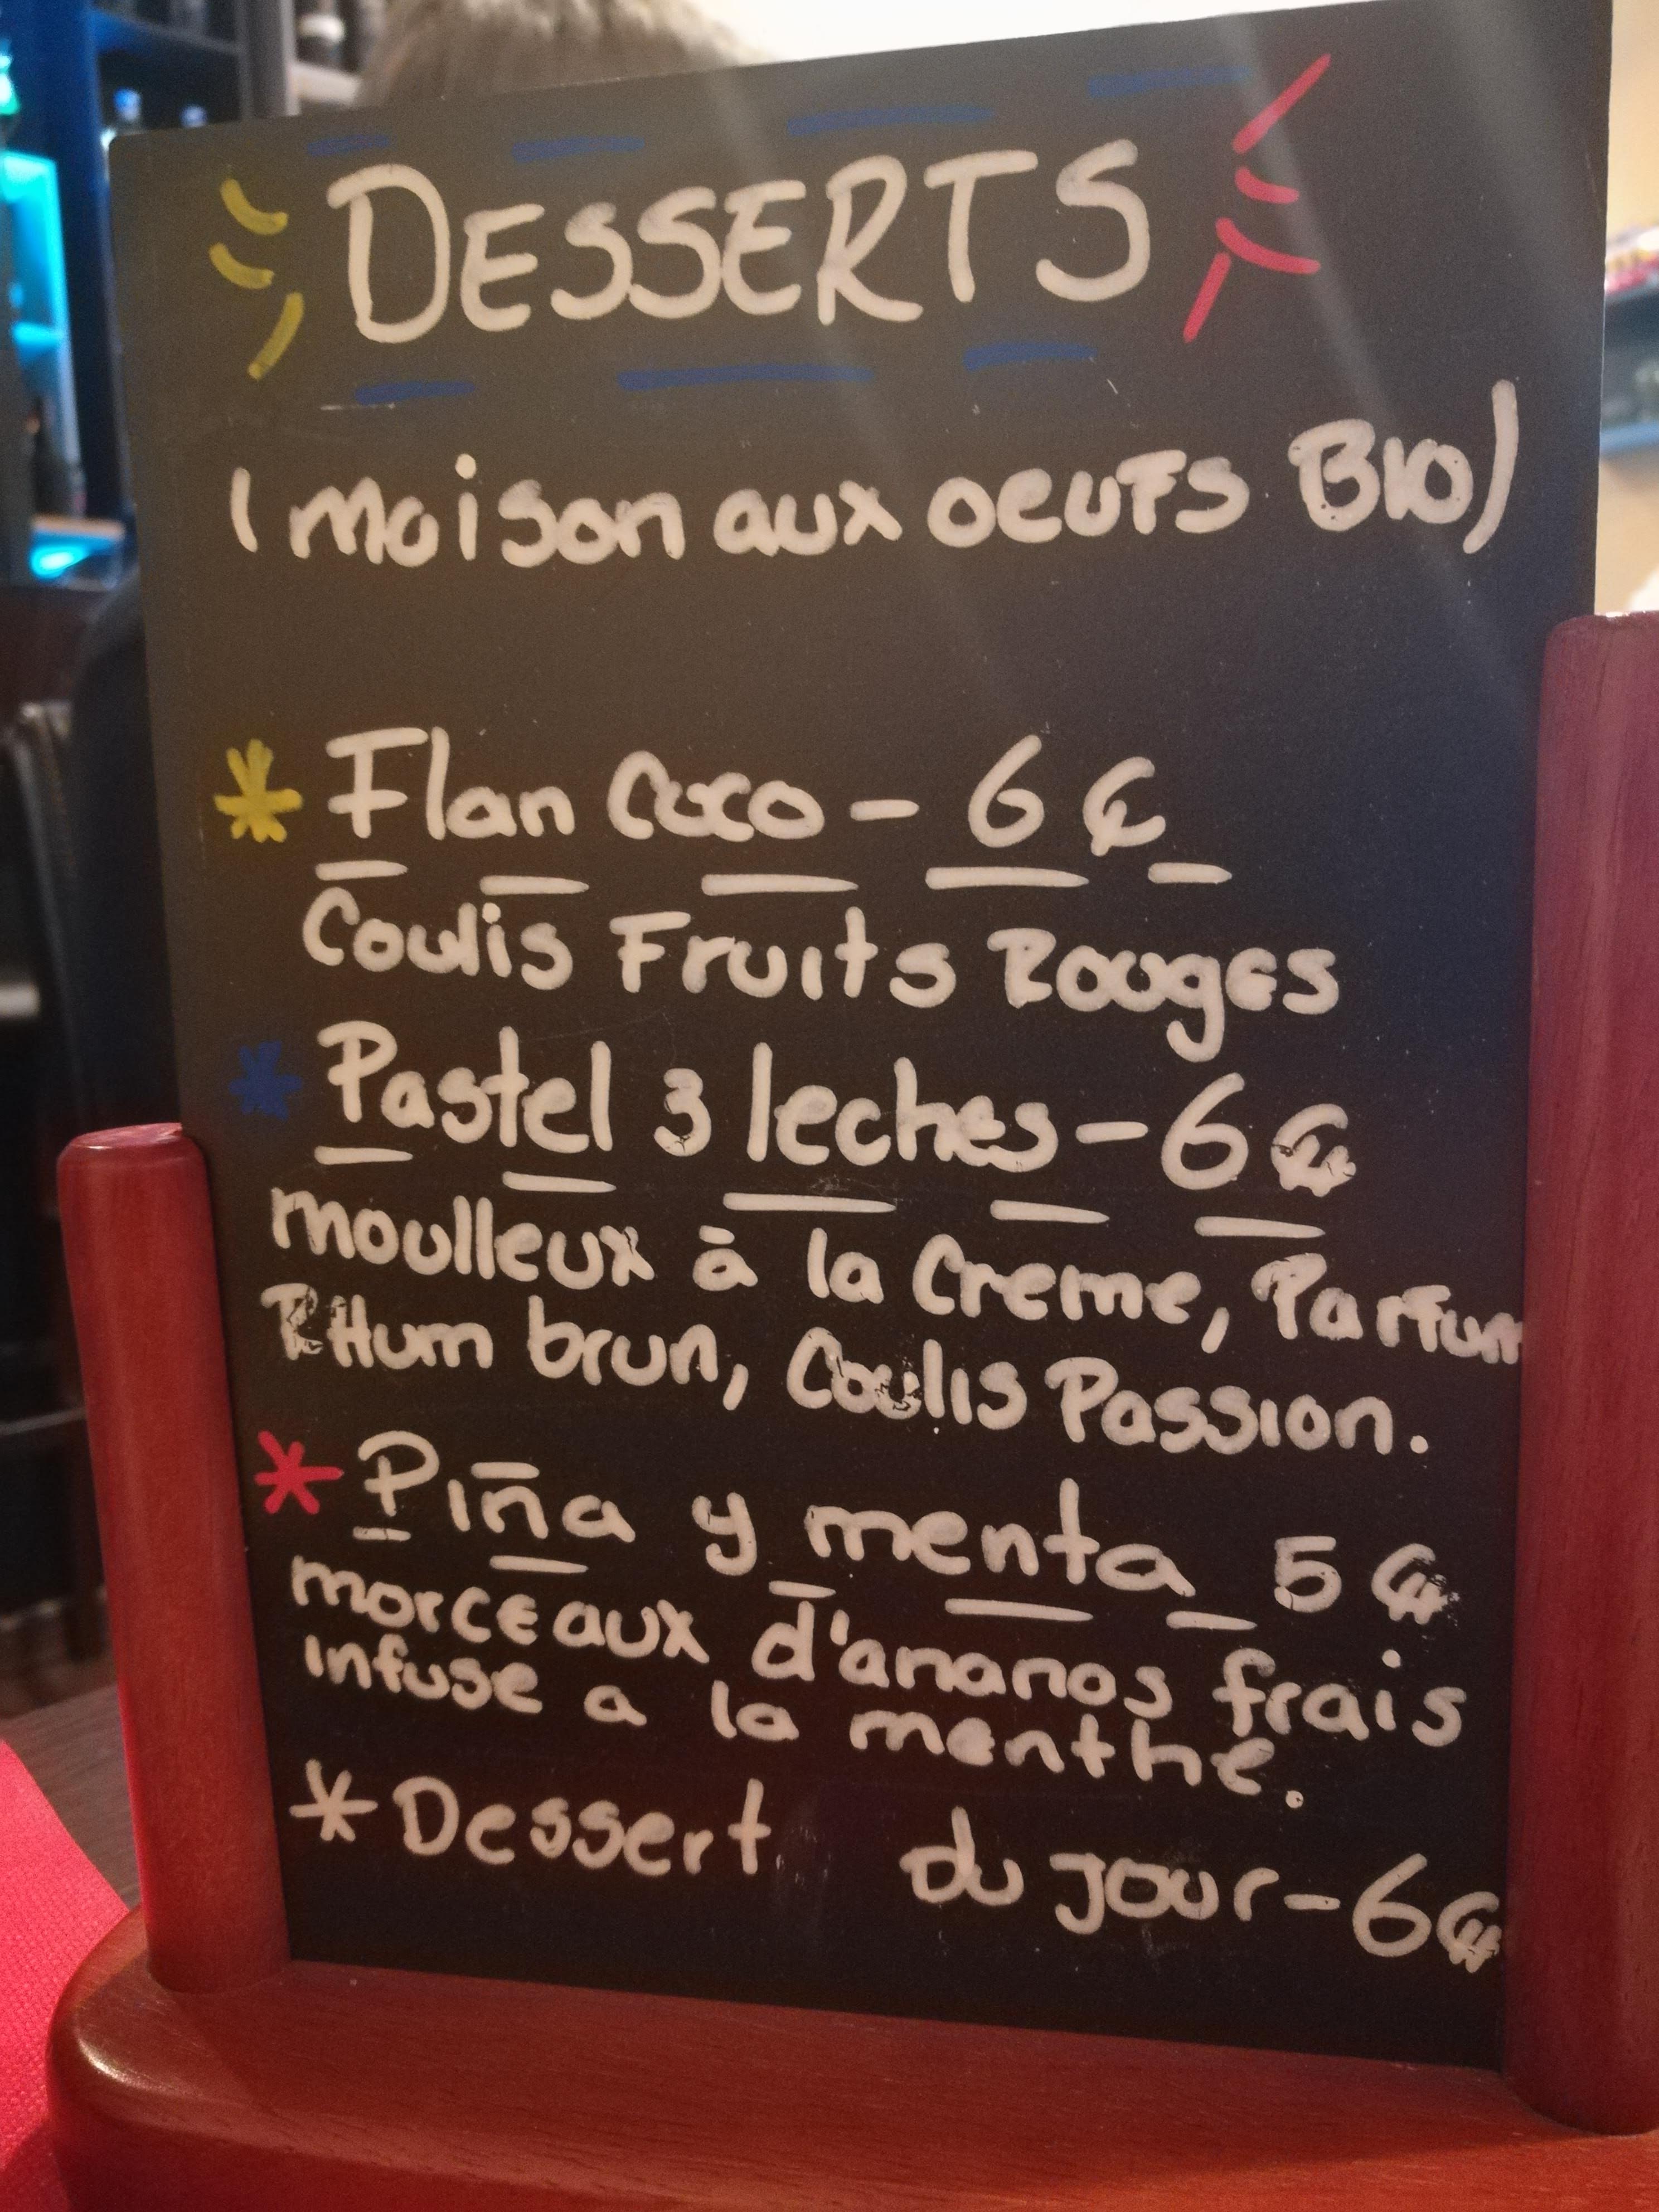 DESSERTS
(Maison aux oeufs BIO)
* Flan Coco - 6 €
Coulis Fruits Rouges
* Pastel 3 leches - 6 €
moulleux à la Creme, Parfum
RHum brun, Coulis Passion.
* Piña y menta 5 €
morceaux d'ananas frais
infuse a la menthe.
* Dessert du jour - 6 €